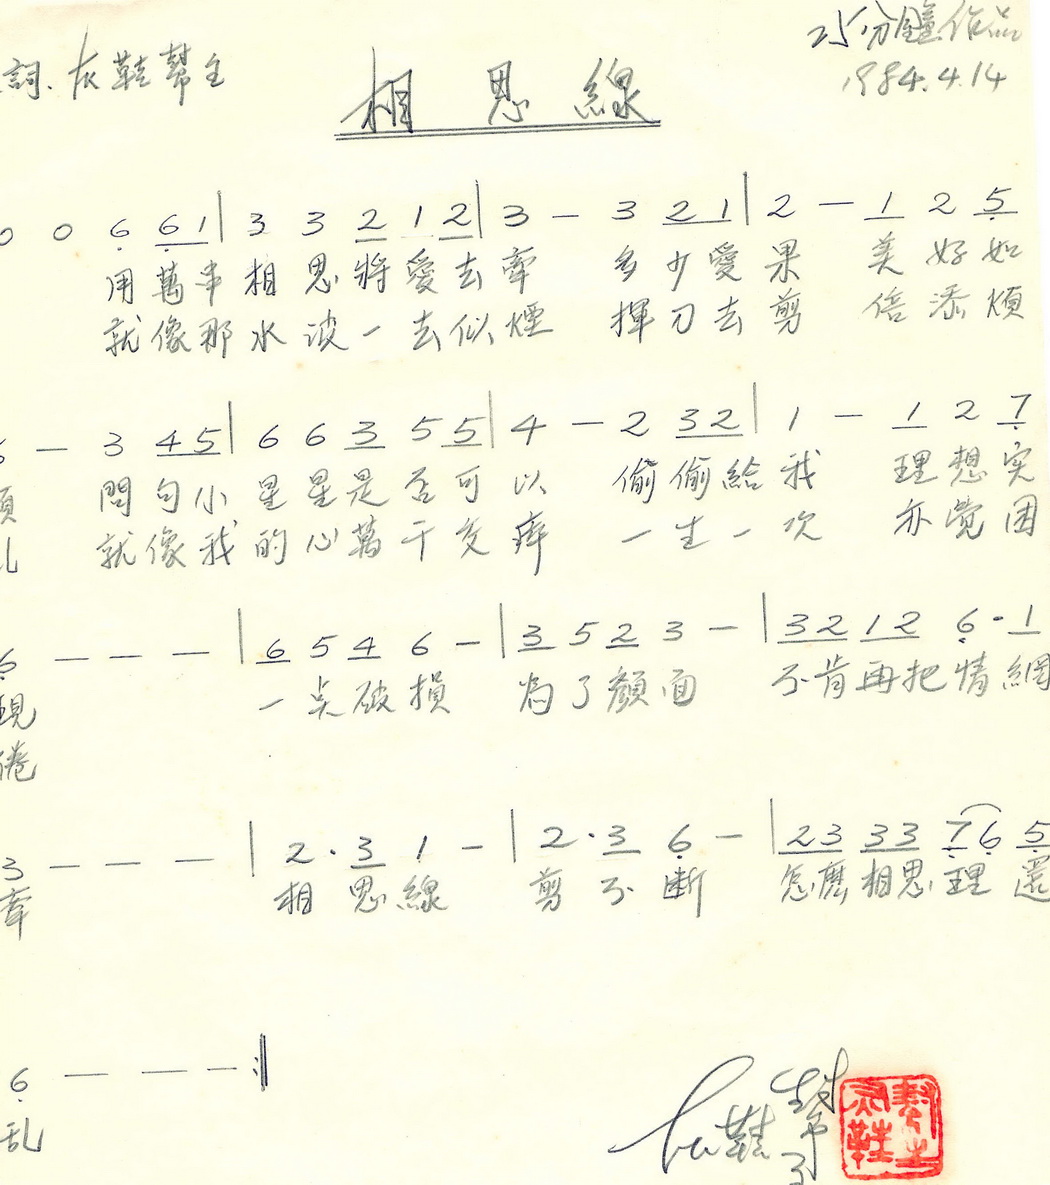 詞.灰鞋幫主
相思線
25分鐘作品
1984.4.14
0 0 6 6 1 | 3 3 2 1 2 | 3 — 3 2 1 | 2 — 1 2 5
用萬串相思將愛去牽 多少愛果 美好如
就像那水波一去似煙 揮刀去剪 倍添煩
6 — 3 4 5 | 6 6 3 5 5 | 4 — 2 3 2 | 1 — 1 2 7
問句小星星是否可以 偷偷給我 理想实
就像我的心萬千交瘁 一生一次 亦覺困
6 — — — | 6 5 4 6 — | 3 5 2 3 — | 3 2 1 2 6 · 1
現 一点破損 為了顏面 不肯再把情網
倦
3 — — — | 2 · 3 1 — | 2 · 3 6 — | 2 3 3 3 7 6 5
牽 相思線 剪不斷 怎麽相思理還
6 — — — :|
乱
灰鞋幫主